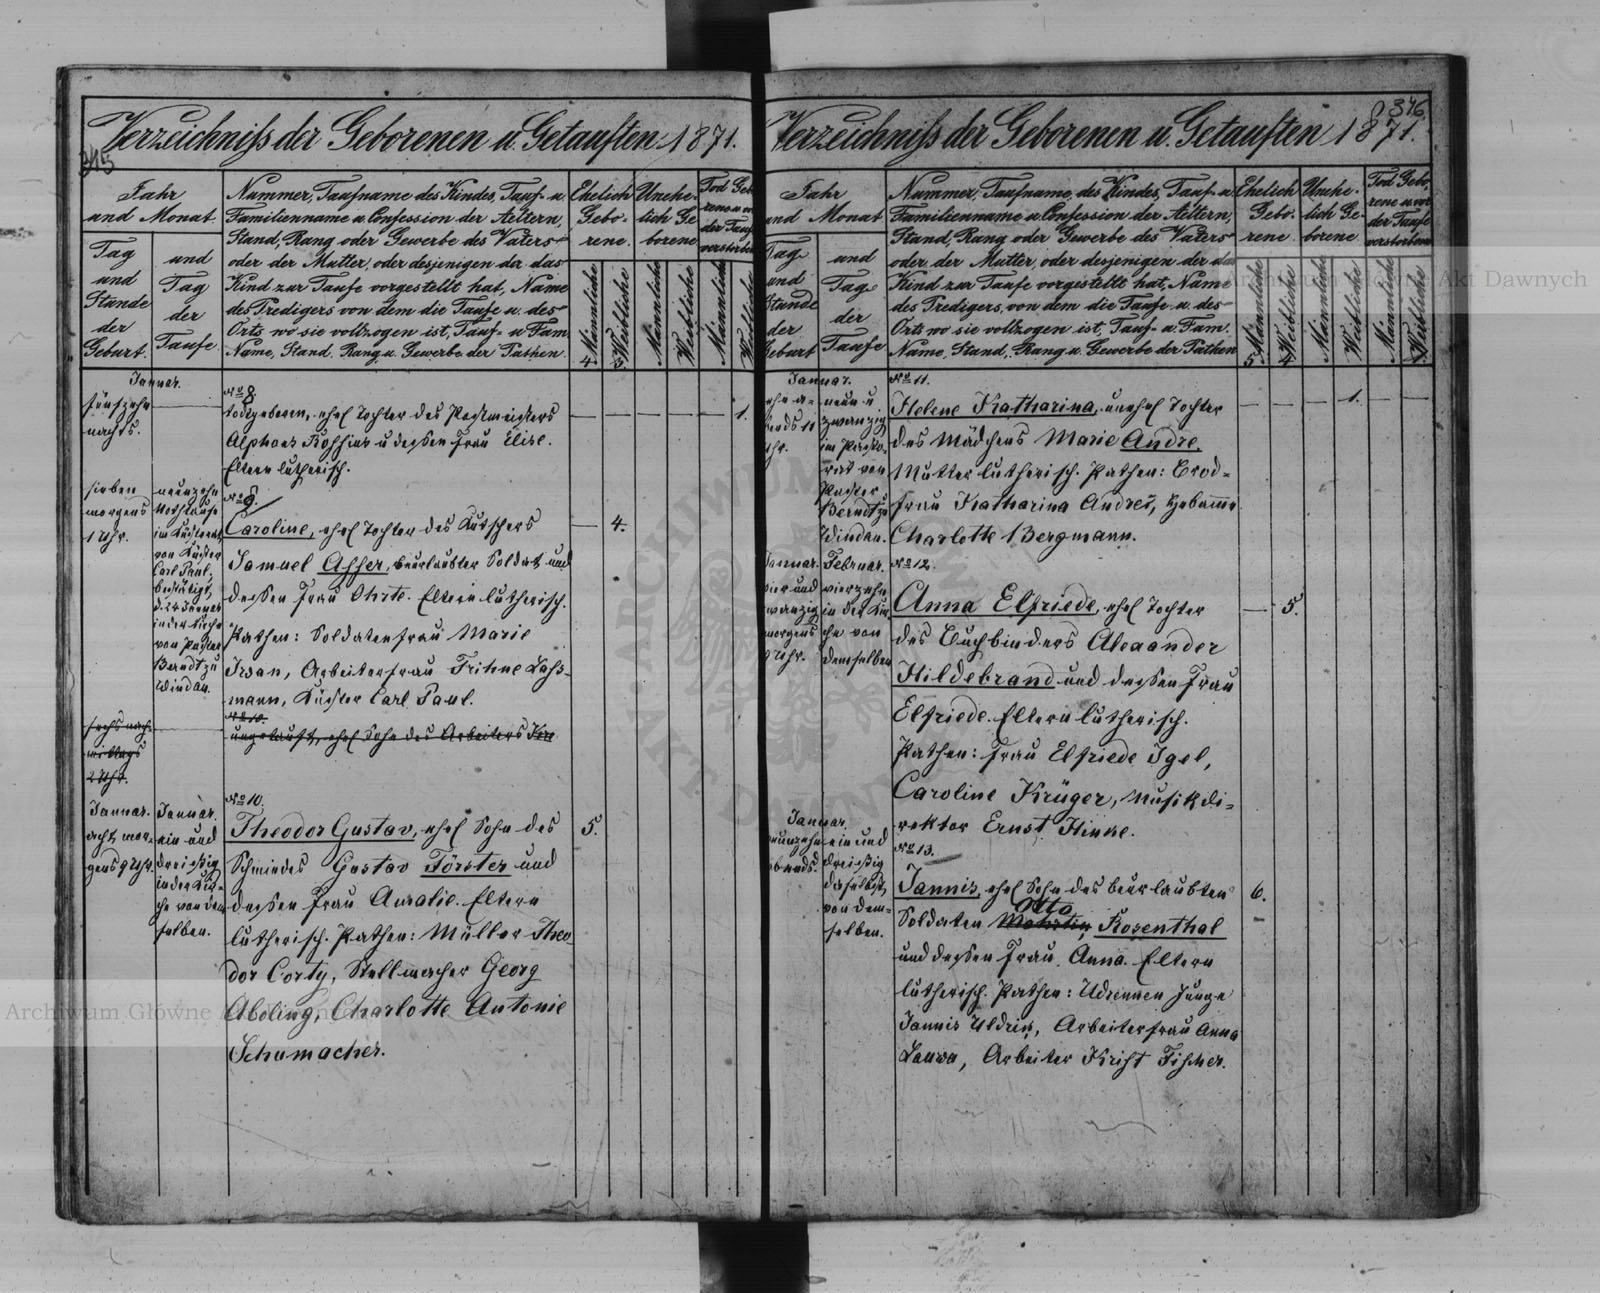 Verzeichniss der Geborenen u. Getauften 1871.
345
Jahr
und Monat
Tag
und
Stunde
der
Geburt.
und
Tag
der
Taufe
Nummer, Taufname des Kindes, Tauf- u.
Familienname u. Confession der Aeltern,
Stand, Rang oder Gewerbe des Vaters
oder der Mutter, oder desjenigen der das
Kind zur Taufe vorgestellt hat, Name
des Predigers von dem die Taufe u. des
Orts wo sie vollzogen ist, Tauf- u. Fam.
Name, Stand, Rang u. Gewerbe der Pathen.
Ehelich
Gebo-
rene.
Unehe-
lich Ge-
borene
Tod Geb
rene u. vor
der Tauf
verstorben
Männliche
Weibliche
Männliche
Weibliche
Männliche
Weibliche
4.
3.
Januar.
fünfzehn
nachts.
No 8.
todtgeboren, ehel Tochter des Postmeisters
Alphons u dessen Frau Elise.
Eltern lutherisch.
1.
sieben
morgens
1 Uhr.
neunzehn
Nothtaufe
im Küsterat
von Küster
Carl Paul,
bestätigt,
d. 24 Januar
in der Kirche
von Pastor
Berndt zu
Windau.
No 9.
Caroline, ehel Tochter des Kutschers
Samuel Affer, beurlaubter Soldat und
dessen Frau Ohrte. Eltern lutherisch.
Pathen: Soldatenfrau Marie
Irsan, Arbeiterfrau Trihne Lass-
mann, Küster Carl Paul.
4.
sechs nach-
mittags
2 Uhr.
No 10.
ungetauft, ehel Sohn des Arbeiters
Januar.
acht mor-
gens 9 Uhr.
Januar.
ein und
dreissig
in der Kir-
che von dem
selben.
No 10.
Theodor Gustav, ehel Sohn des
Schmiedes Gustav Förster und
dessen Frau Auralie. Eltern
lutherisch. Pathen: Müller Theo
dor Corty, Stellmacher Georg
Aboling, Charlotte Antonie
Schumacher.
5.
Verzeichniss der Geborenen u. Getauften 1871.
346
Jahr
und Monat
Tag
und
Stunde
der
Geburt
und
Tag
der
Taufe
Nummer, Taufname des Kindes, Tauf- u.
Familienname u. Confession der Aeltern,
Stand, Rang oder Gewerbe des Vaters
oder der Mutter, oder desjenigen der das
Kind zur Taufe vorgestellt hat, Name
des Predigers, von dem die Taufe u. des
Orts wo sie vollzogen ist, Tauf- u. Fam.
Name, Stand, Rang u. Gewerbe der Pathen
Ehelich
Gebo-
rene
Unehe-
lich Ge-
borene
Tod Gebo
rene u. vor
der Taufe
verstorbene
Männliche
Weibliche
Männliche
Weibliche
Männliche
Weibliche
5.
4.
Januar.
zehn a-
bends 11
Uhr.
neun u
zwanzig
im Pasto-
rat von
Pastor
Berndt zu
Windau.
No 11.
Helene Katharina, unehel Tochter
des Mädchens Marie Andre,
Mutter lutherisch. Pathen:
frau Katharina Andrei, Hebamme
Charlotte Bergmann.
1.
Januar.
vier und
zwanzig
morgens
9 Uhr.
Februar.
vierzehn
in der Kir
che von
demselben
No 12.
Anna Elfriede, ehel Tochter
des Buchbinders Alexander
Hildebrand und dessen Frau
Elfriede. Eltern lutherisch.
Pathen: Frau Elfriede Igel,
Caroline Krüger, Musikdi-
rektor Ernst Hinke.
5.
Januar.
neunzehn
abends.
ein und
dreissig
daselbst,
von dem-
selben.
No 13.
Jannis, ehel Sohn des beurlaubten
Otto
Soldaten Mahrtin Rosenthal
und dessen Frau Anna. Eltern
lutherisch. Pathen: Junge
Jannis Uldrin, Arbeiterfrau Anna
Lauwa, Arbeiter Krist Fischer.
6.
Archiwum Główne Akt Dawnych
ARCHIWUM GŁÓWNE AKT DAWNYCH
Archiwum Główne Akt Dawnych